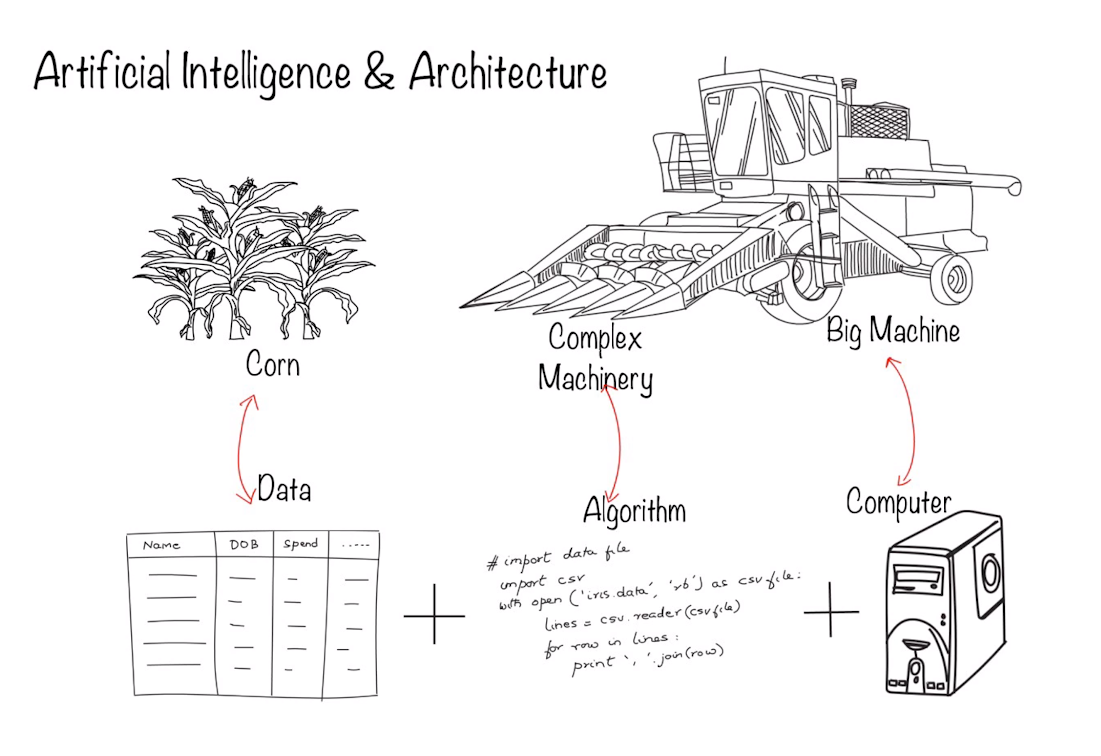 Artificial Intelligence & Architecture
Corn
Complex
Machinery
Big Machine
Data
Algorithm
Computer
Name DOB Spend .....
# import data file
import csv
with open ('iris.data', 'rb') as csvfile:
lines = csv.reader(csvfile)
for row in lines:
print ', '.join(row)